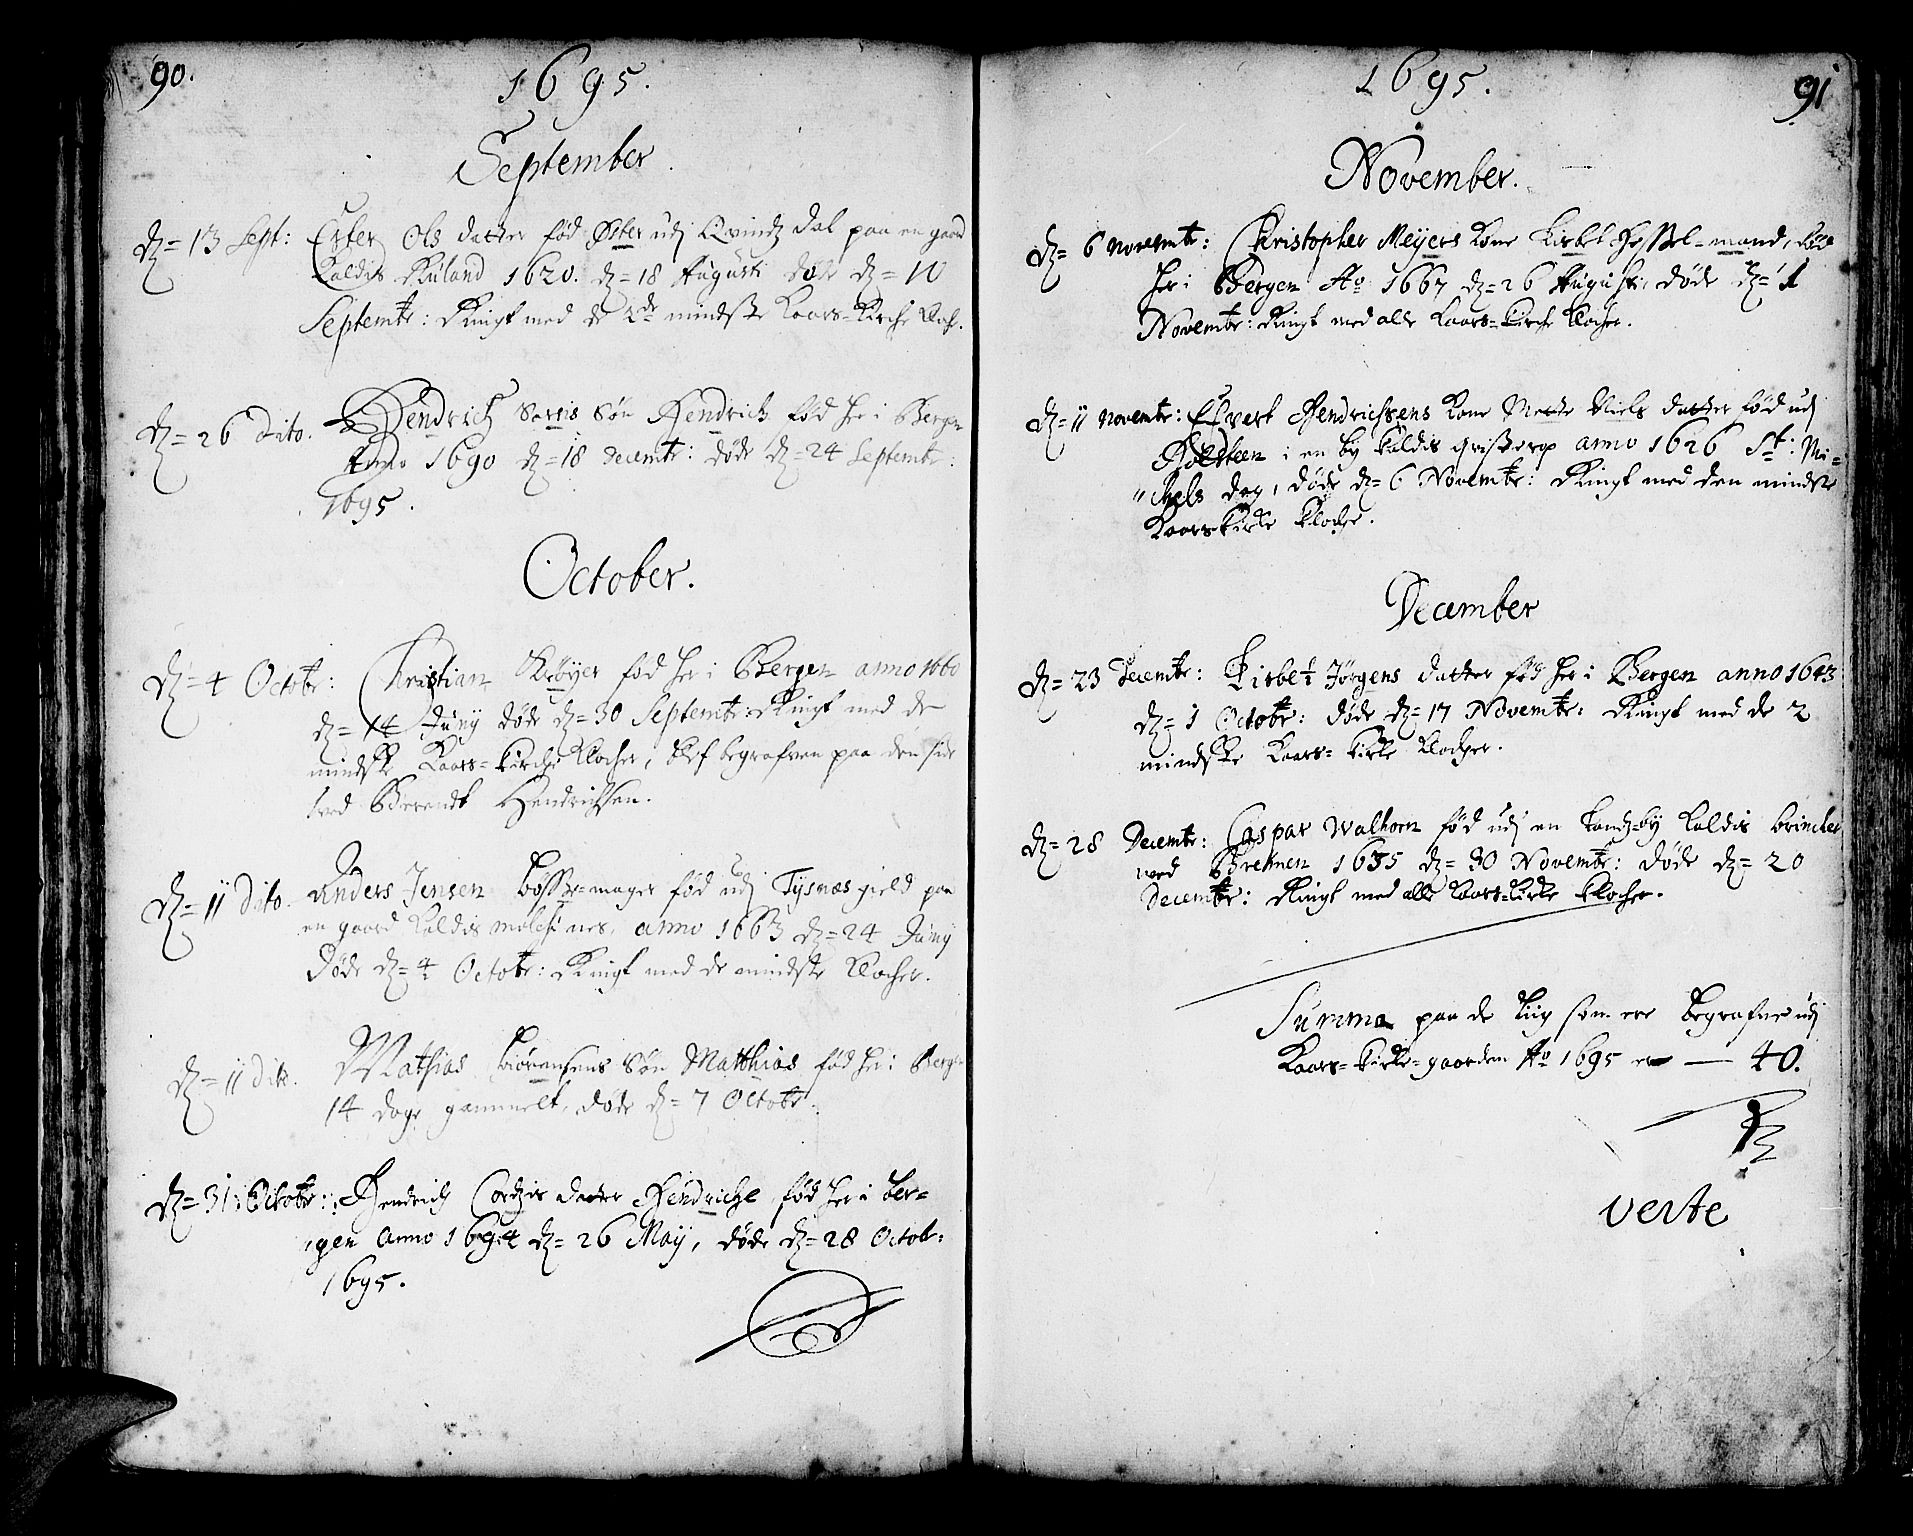 90.
1695.
September
Dz= 13 Sept: Ester Ols datter fød Øster udj Qvindz dal paa en gaard
kaldis 1620. dz= 18 Augusti døde dz= 10
Septembr: Ringt med de 2de mindste Kaars=Kirche Kloch.
Dz= 26 Dito. Hendrich søn Hendrich fød her i Bergen
Anno 1690 dz= 18 Decembr: døde dz= 24 Septembr:
1695.
October.
Dz= 4 Octobr: Christian Krøyer fød her i Bergen anno 1660
dz= 14 Junij døde dz= 30 Septembr: Ringt med de
mindste Kaars=Kirche Klocher, blef begrafven paa den side
ved Berendt Hendrichsen.
Dz= 11 Dito. Anders Jensen Bøsse=mager fød udj Tysnæs gield paa
en gaard kaldis anno 1663 dz= 24 Junij
Døde dz= 4 Octobr: Ringt med de mindste Klocher.
Dz= 11 Dito. Mathias søn Matthias fød her i Bergen
14 dage gammelt, døde dz= 7 Octobr.
Dz= 31 Octobr: Hendrich Cordzis datter Hendriche fød her i Ber=
gen Anno 1694 dz= 26 Maij, døde dz= 28 Octob:
1695.
1695.
91
November.
Dz= 6 Novembr: Christopher Meyers Kone Lisbet Hessel=mand, fød
her i Bergen Ao 1667 dz= 26 Augusti, døde dz= 1
Novembr: Ringt med alle Kaars=Kirche Klocher.
Dz= 11 Novembr: Efvert Hendrichsens Kone Mette Niels datter fød udj
Holsteen i en by kaldis anno 1626 St: Mi=
"chels dag, døde dz= 6 Novembr: Ringt med den mindste
Kaarskirke Kloche.
December
Dz= 23 Decembr: Lisbet Jørgens datter fød her i Bergen anno 1643
dz= 1 Octobr: døde dz= 17 Novembr: Ringt med de 2
mindste Kaars=Kirke Klocher.
Dz= 28 Decembr: Caspar Walhorn fød udj en Landz=by kaldis Brincher
wed Bremen 1635 dz= 30 Novembr: døde dz= 20
Decembr: Ringt med alle Kaars=Kirke Klocher.
Summa paa de Liig som ere begrafne udj
Kaars=Kirke=gaarden Ao 1695 er — 40.
verte